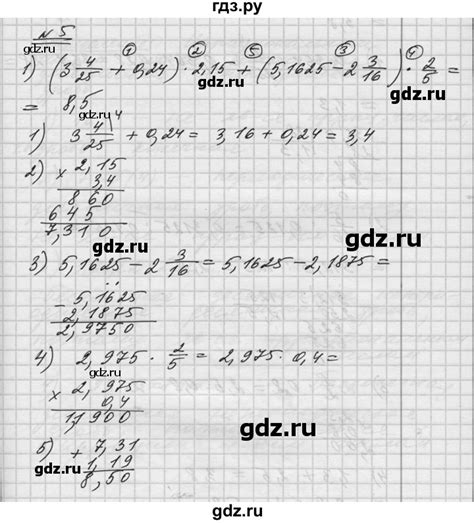 гдз.ру
№5
1) (3 4/25 + 0,24) · 2,15 + (5,1625 − 2 3/16) · 2/5 =
① ② ⑤ ③ ④
= 8,5
gdz.ru
1) 3 4/25 |4 + 0,24 = 3,16 + 0,24 = 3,4
2) × 2,15
3,4
860
645
7,310
gdz.ru
gdz.ru
3) 5,1625 − 2 3/16 = 5,1625 − 2,1875 =
− 5,1625
2,1875
2,9750
gdz.ru
4) 2,975 · 2/5 = 2,975 · 0,4 =
× 2,975
0,4
1,1900
gdz.ru
gdz.ru
5) + 7,31
1,19
8,50
gdz.ru
gdz.ru
gdz.ru